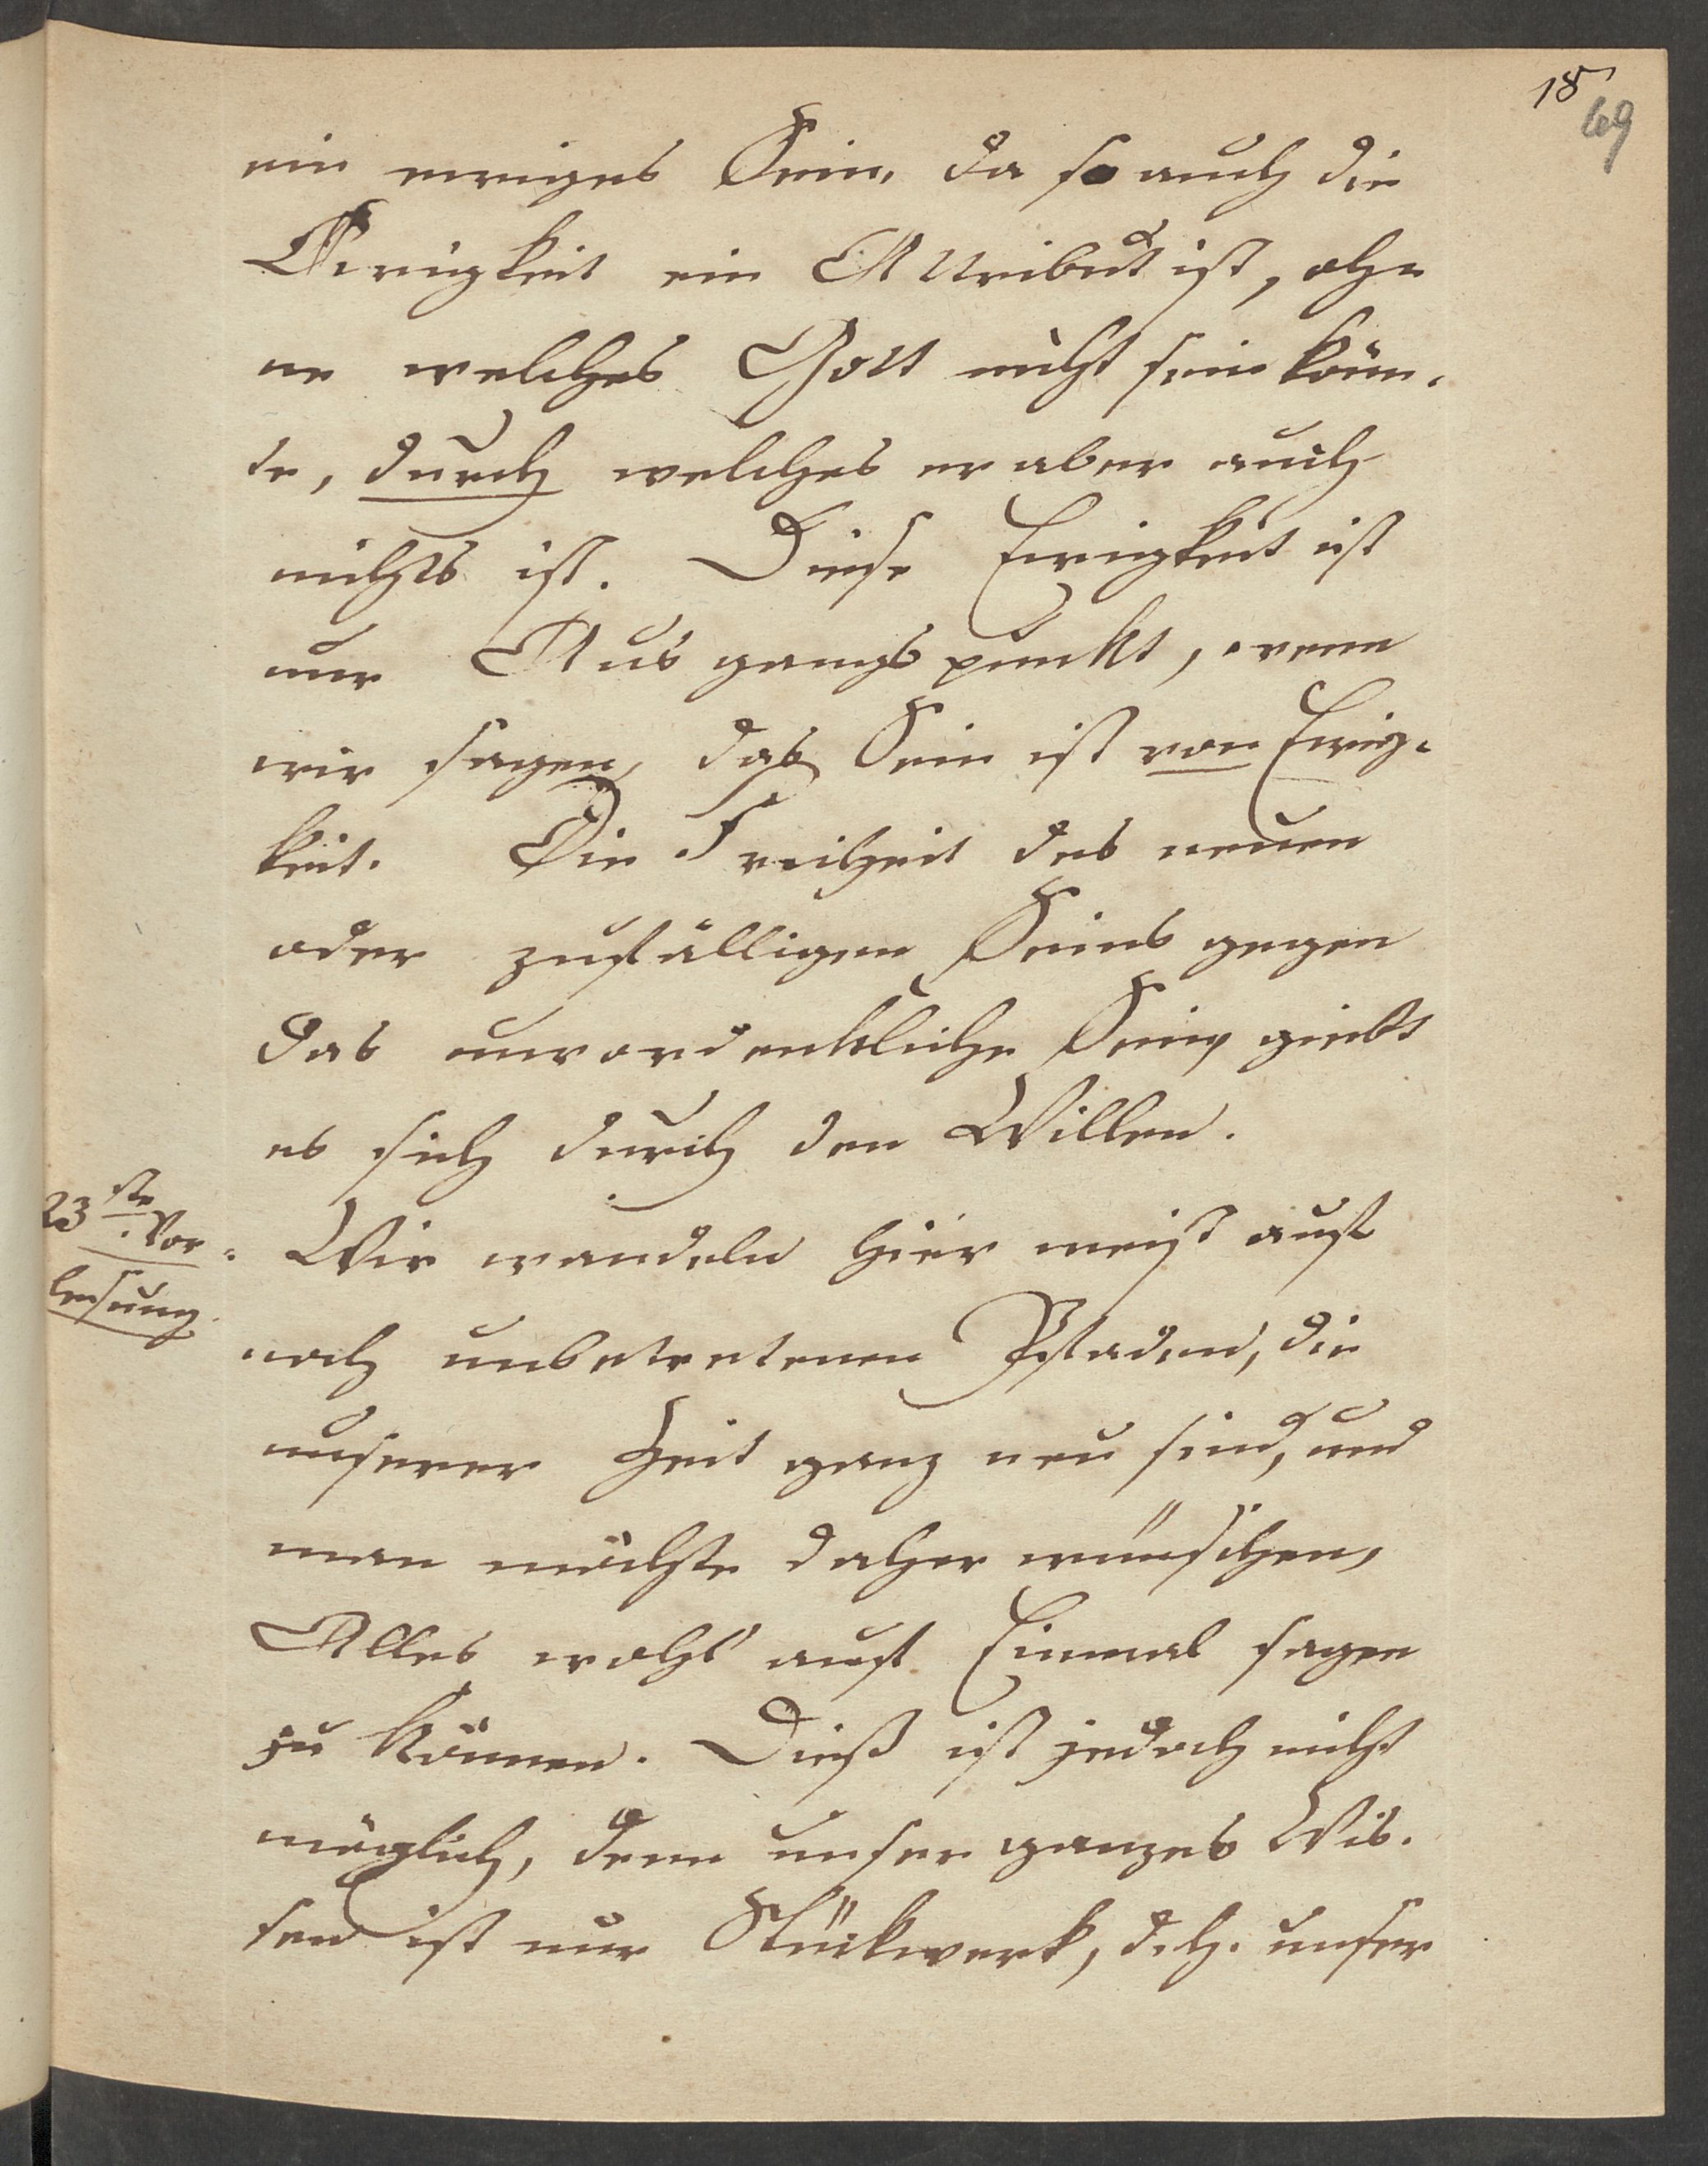 18
69
ein ewiges Sein, da so auch die
Ewigkeit ein Attribut ist, oh-
ne welches Gott nicht sein könn-
te, durch welches er aber auch
nichts ist. Diese Ewigkeit ist
nur Ausgangspunkt, wenn
wir sagen, das Sein ist von Ewig-
keit. Die Freiheit des neuen
oder zufälligen Seins gegen
das unvordenkliche Sein, giebt
es sich durch den Willen.
23ste Vor-
lesung.
Wir wandeln hier meist auf
noch unbetretenen Pfaden, die
unserer Zeit ganz neu sind, und
man möchte daher wünschen,
Alles wohl auf Einmal sagen
zu können. Dieß ist jedoch nicht
möglich, denn unser ganzes Wis-
sen ist nur Stückwerk, d.h. unser